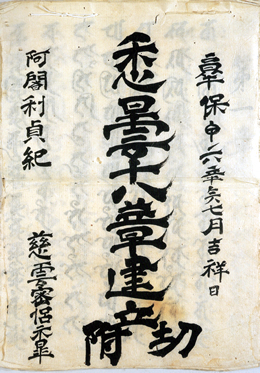 享保十六辛亥七月吉祥日
悉曇十八章建立
切附
阿闍利貞紀
慈雲